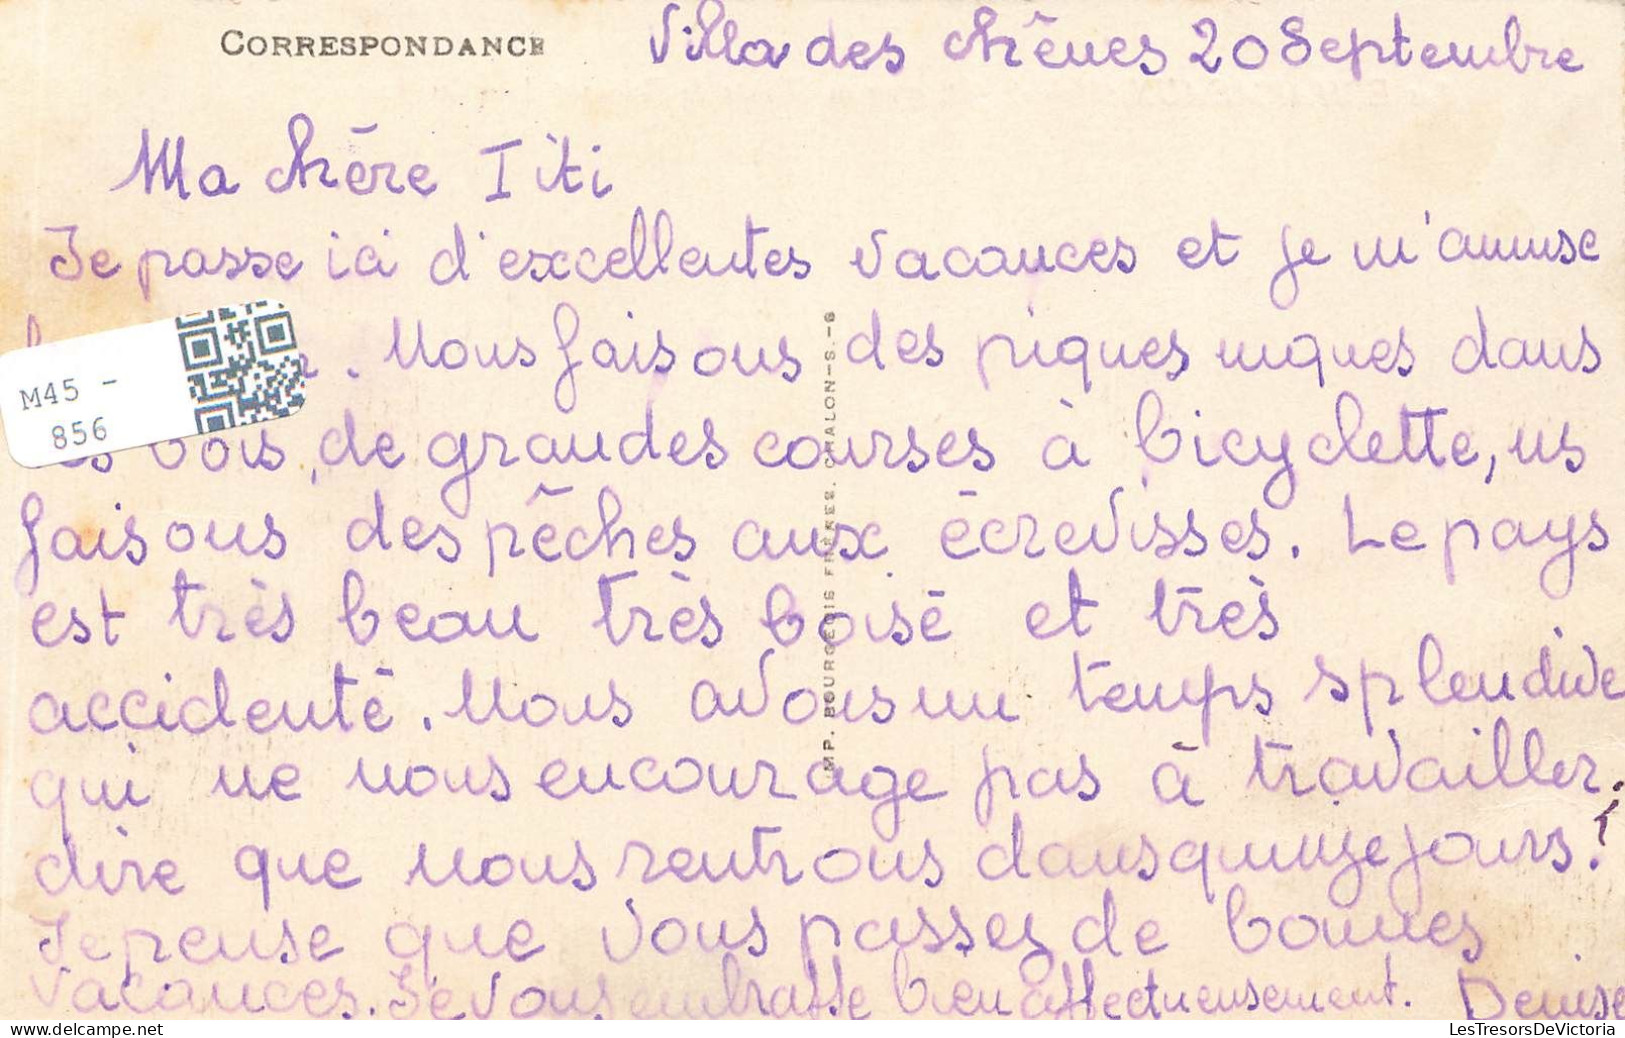 CORRESPONDANCE
Villa des chênes 20 Septembre
Ma chère Titi
Je passe ici d'excellentes vacances et je m'amuse
. Nous faisons des piques niques dans
M45 -
856
bois, de grandes courses à bicyclette, ns
faisons des pêches aux écrevisses. Le pays
est très beau très boisé et très
accidenté. Nous avons un temps splendide
qui ne nous encourage pas à travailler.
dire que nous rentrons dans quinze jours!
Je pense que vous passez de bonnes
vacances. Je vous embrasse bien affectueusement. Denise
IMP. BOURGEOIS FRÈRES. CHALON-S.-S
LesTresorsDeVictoria
www.delcampe.net
LesTresorsDeVictoria